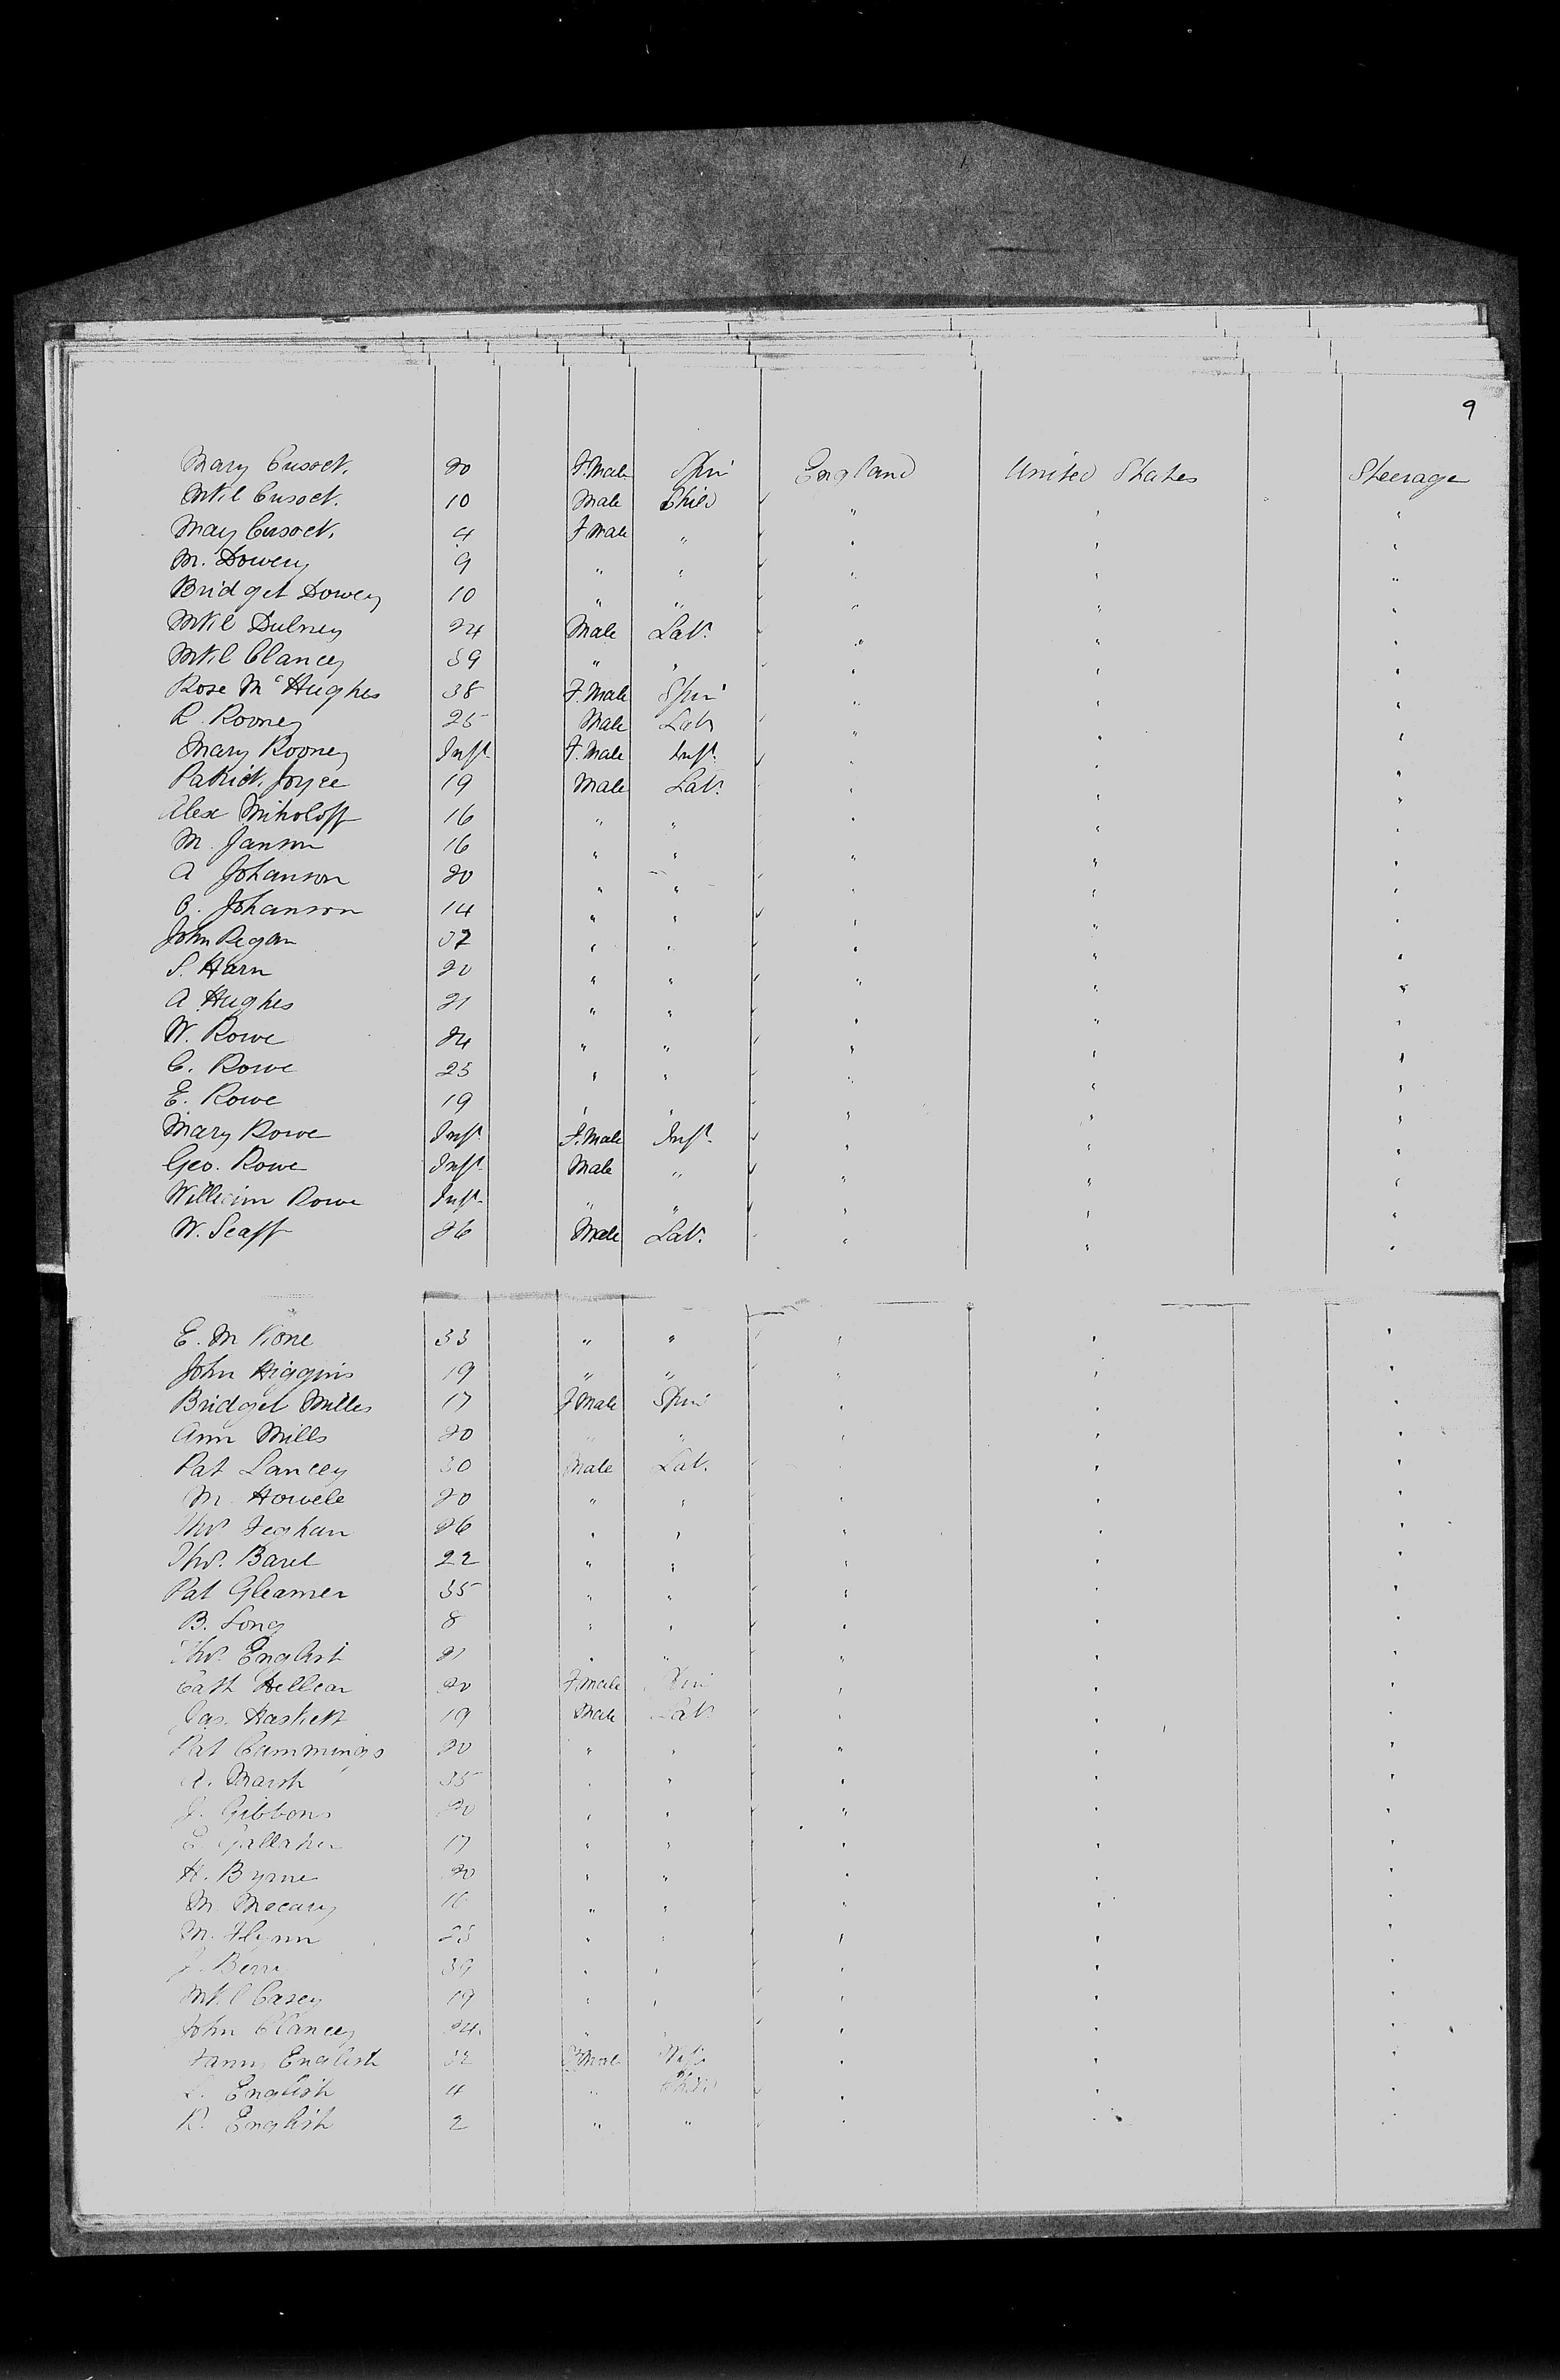 9
Mary Cusack. 20 F.Male Spin England United States Steerage
Mkl Cusack. 10 Male Child " " "
Mary Cusack. 4 F Male " " " "
M. Dowey 9 " " " " "
Bridget Dowey 10 " " " " "
Mkl Dulney 24 Male Labr " " "
Mkl Clancey 39 " " " " "
Rose McHughes 38 F.Male Spin " " "
R. Rooney 25 Male Labr " " "
Mary Rooney Inft F.Male Inft " " "
Patrick Joyce 19 Male Labr " " "
Alex Miholoff 16 " " " " "
M. Janson 16 " " " " "
A Johanson 20 " " " " "
O. Johanson 14 " " " " "
John Regan 37 " " " " "
S. Harn 20 " " " " "
A Hughes 21 " " " " "
W. Rowe 24 " " " " "
C. Rowe 23 " " " " "
E. Rowe 19 " " " " "
Mary Rowe Inft F.Male Inft " " "
Geo. Rowe Inft Male " " " "
William Rowe Inft " " " " "
W. Scaff 26 Male Labr " " "
E. M Kone 33 " " " " "
John Higgins 19 " " " " "
Bridget Mills 17 F Male Spin " " "
Ann Mills 20 " " " " "
Pat Lancey 30 Male Labr " " "
M. Howele 20 " " " " "
Thos Feghan 26 " " " " "
Thos. Barel 22 " " " " "
Pat Gleamer 35 " " " " "
B. Long 8 " " " " "
Thos. English 21 " " " " "
Cath Hellean 20 F Male Spin " " "
Jas. Haskett 19 Male Labr " " "
Pat Cummings 20 " " " " "
A. Marsh 35 " " " " "
J. Gibbons 20 " " " " "
E. Gallaher 17 " " " " "
H. Byrne 20 " " " " "
M. Mecary 16 " " " " "
M. Flynn 23 " " " " "
J. 39 " " " " "
Mkl Casey 19 " " " " "
John Clancey 24 " " " " "
Fanny English 32 F Male Wife " " "
L. English 4 " Child " " "
R. English 2 " " " " "